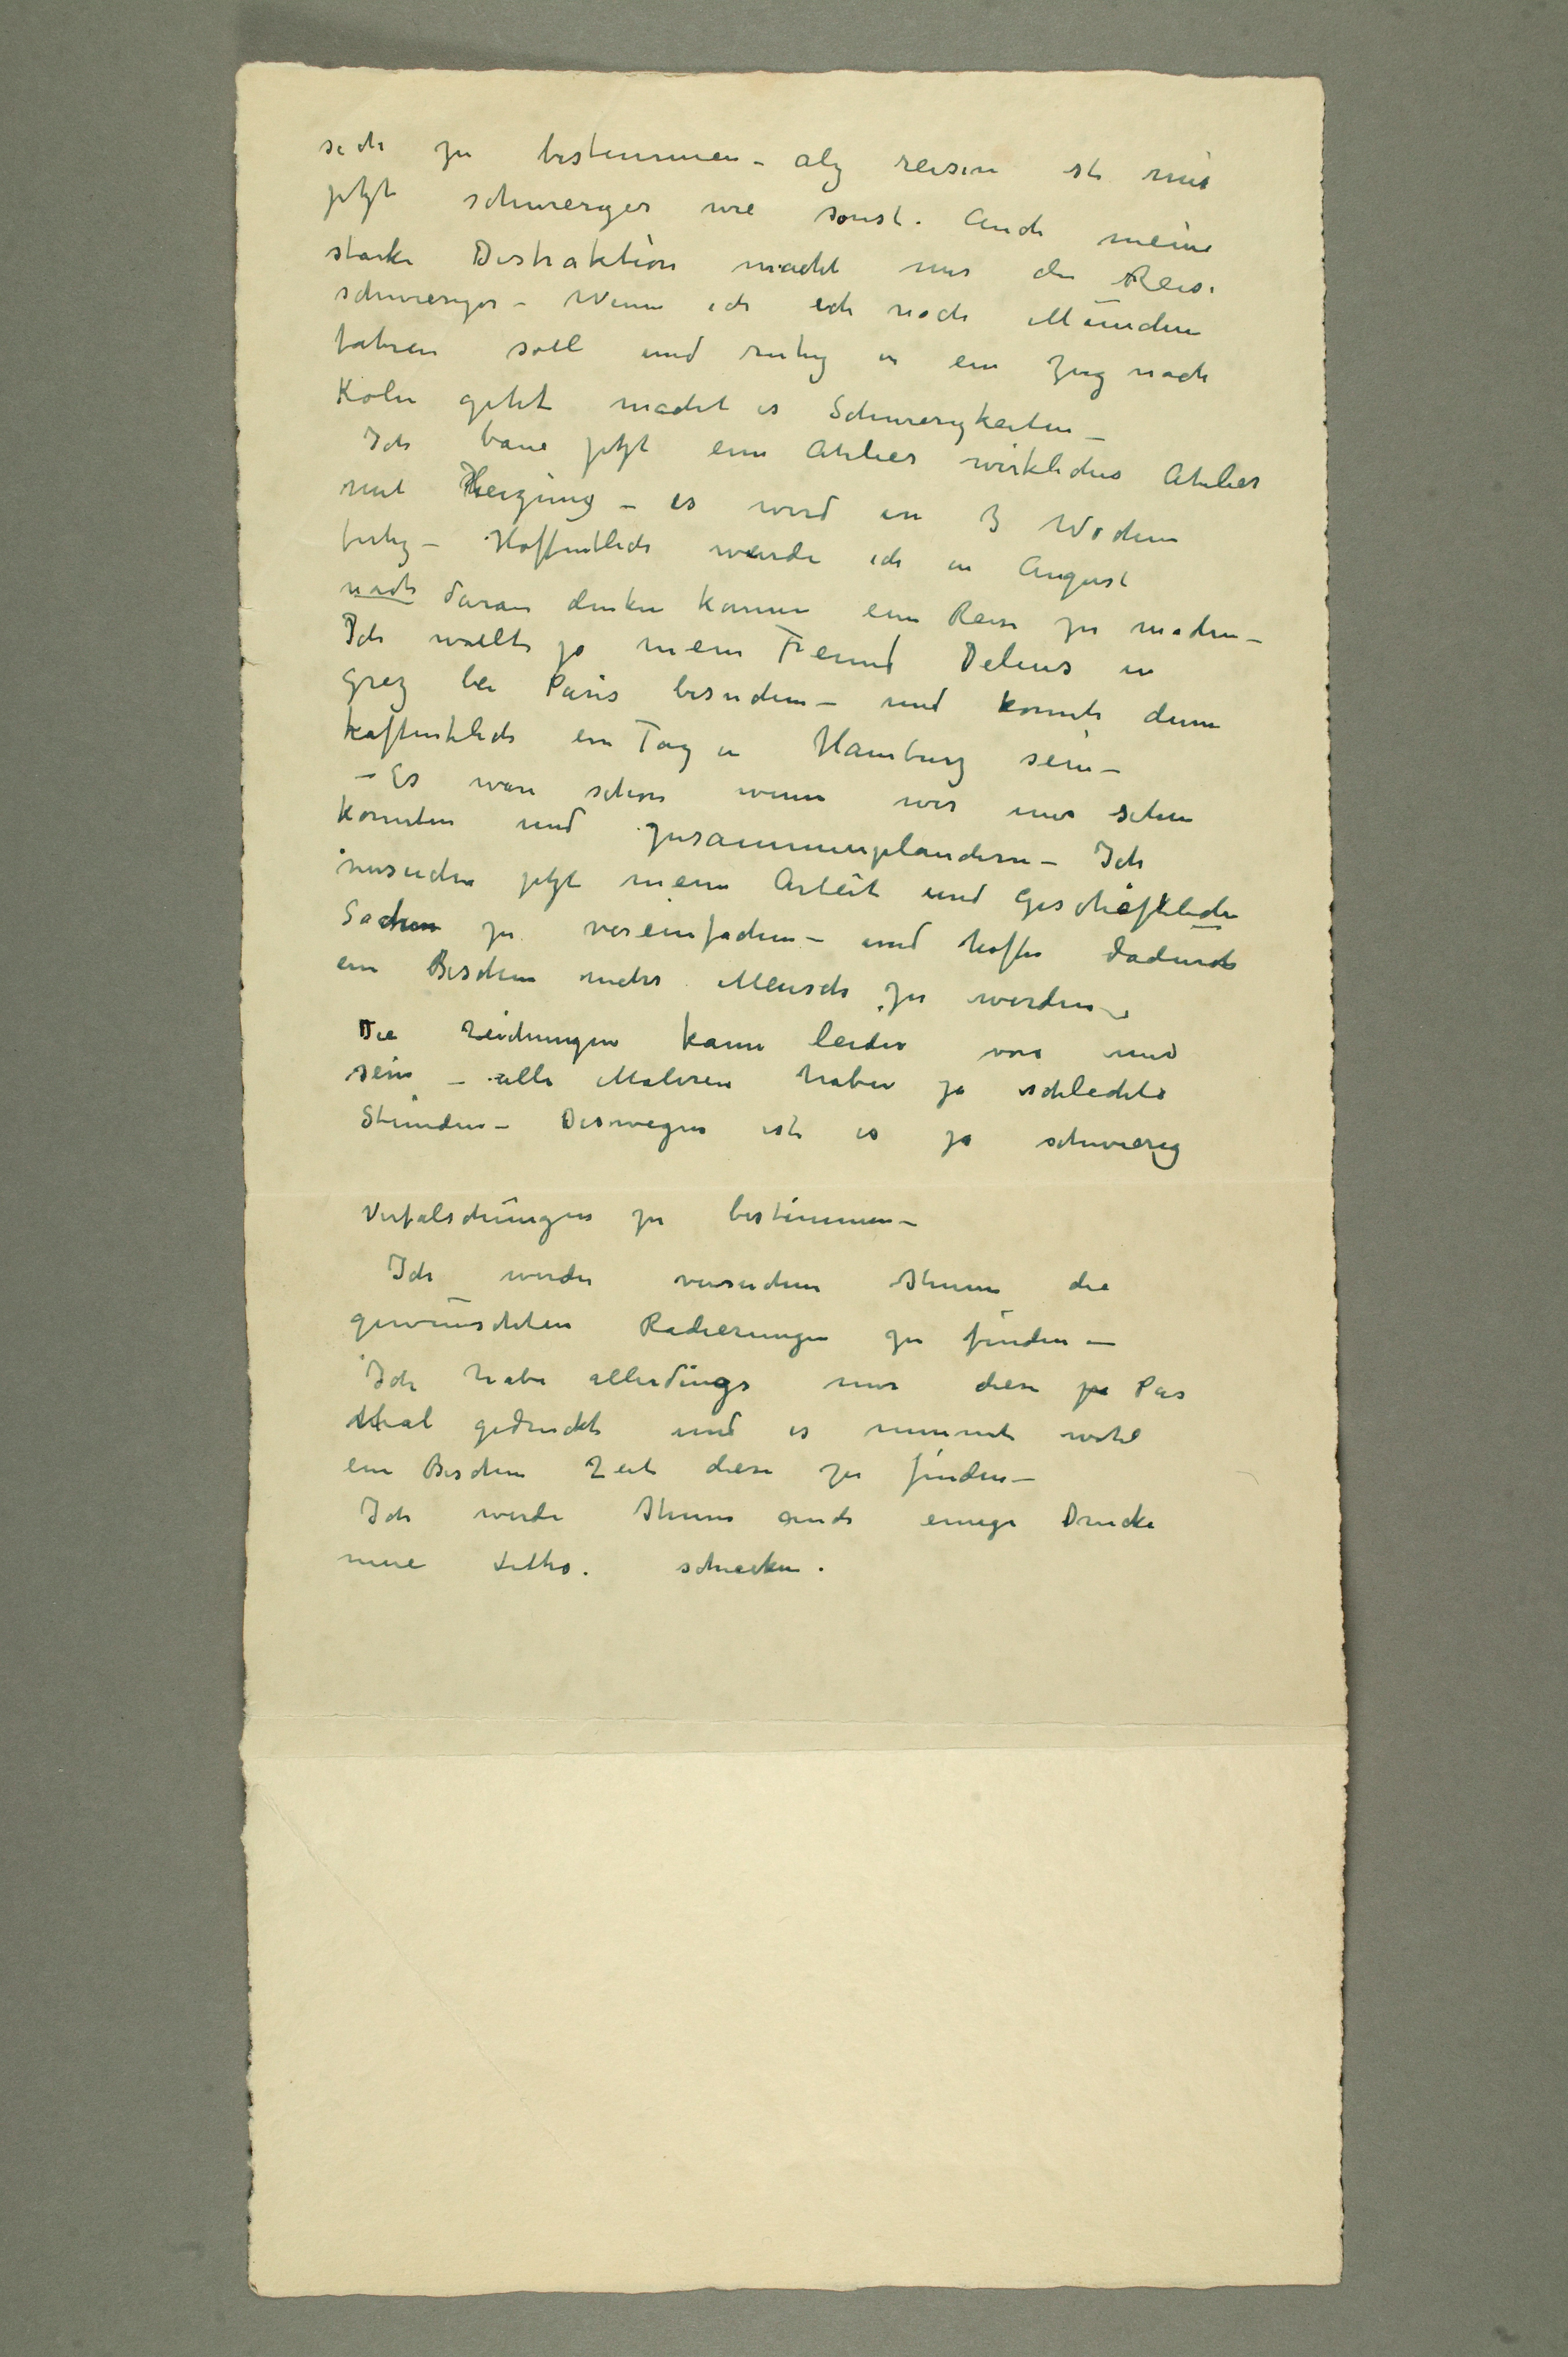 sich zu bestimmen – alz reisen ist mir
jetzt schwieriger wie sonst. Auch meine
starke Distraktion macht mir die Reise
schwieriger – Wenn ich ich nach München
fahren soll und ruhig in ein Zug nach
Köln geht macht es Schwierigkeiten –
Ich baue jetzt ein Atelier wirkliches Atelier
mit Heizung – es wird in 3 Wochen
fertig – Hoffentlich werde ich in August
noch daran denken können eine Reise zu machen –
Ich wollte ja mein Freund Delius in
Grez bei Paris besuchen – und konnte denn
hoffentlich ein Tag in Hamburg sein –
– Es wäre schön wenn wir uns sehen
konnten und zusammenplaudern – Ich
versuche jetzt meine Arbeit und Geschäftliche
Sachen zu vereinfachen – und hoffe dadurch
ein Bischen mehr Mensch zu werden –
Die Zeichnungen kann leider von mir
sein – alle Maleren haben ja schlechte
Stunden – Deswegen ist es ja schwierig
Verfalschungen zu bestimmen –
Ich werde versuchen Ihnen die
gewünschten Radierungen zu finden –
Ich habe allerdings nur diese Par
Mal gedruckt und es nimmt wohl
ein Bischen Zeit diese zu finden –
Ich werde Ihnen auch einige Drucke
neue Litho. schicken.